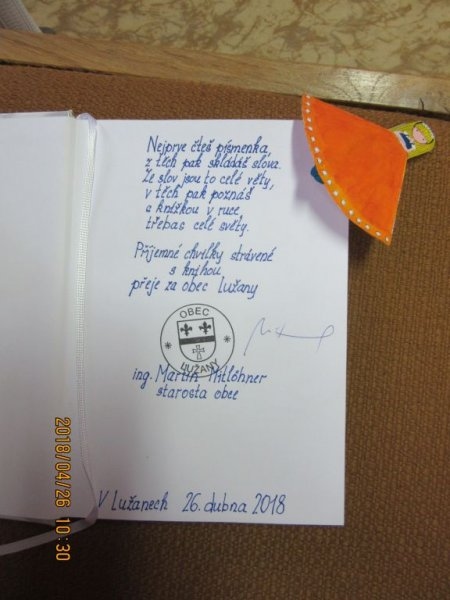 Nejprve čteš písmenka,
z těch pak skládáš slova.
Ze slov jsou to celé věty,
v těch pak poznáš
s knížkou v ruce
třebas celé světy.
Příjemné chvilky strávené
s knihou
přeje za obec Lužany
OBEC
LUŽANY
ing. Martin Hitlöhner
starosta obce
V Lužanech 26. dubna 2018
2018/04/26 10:30